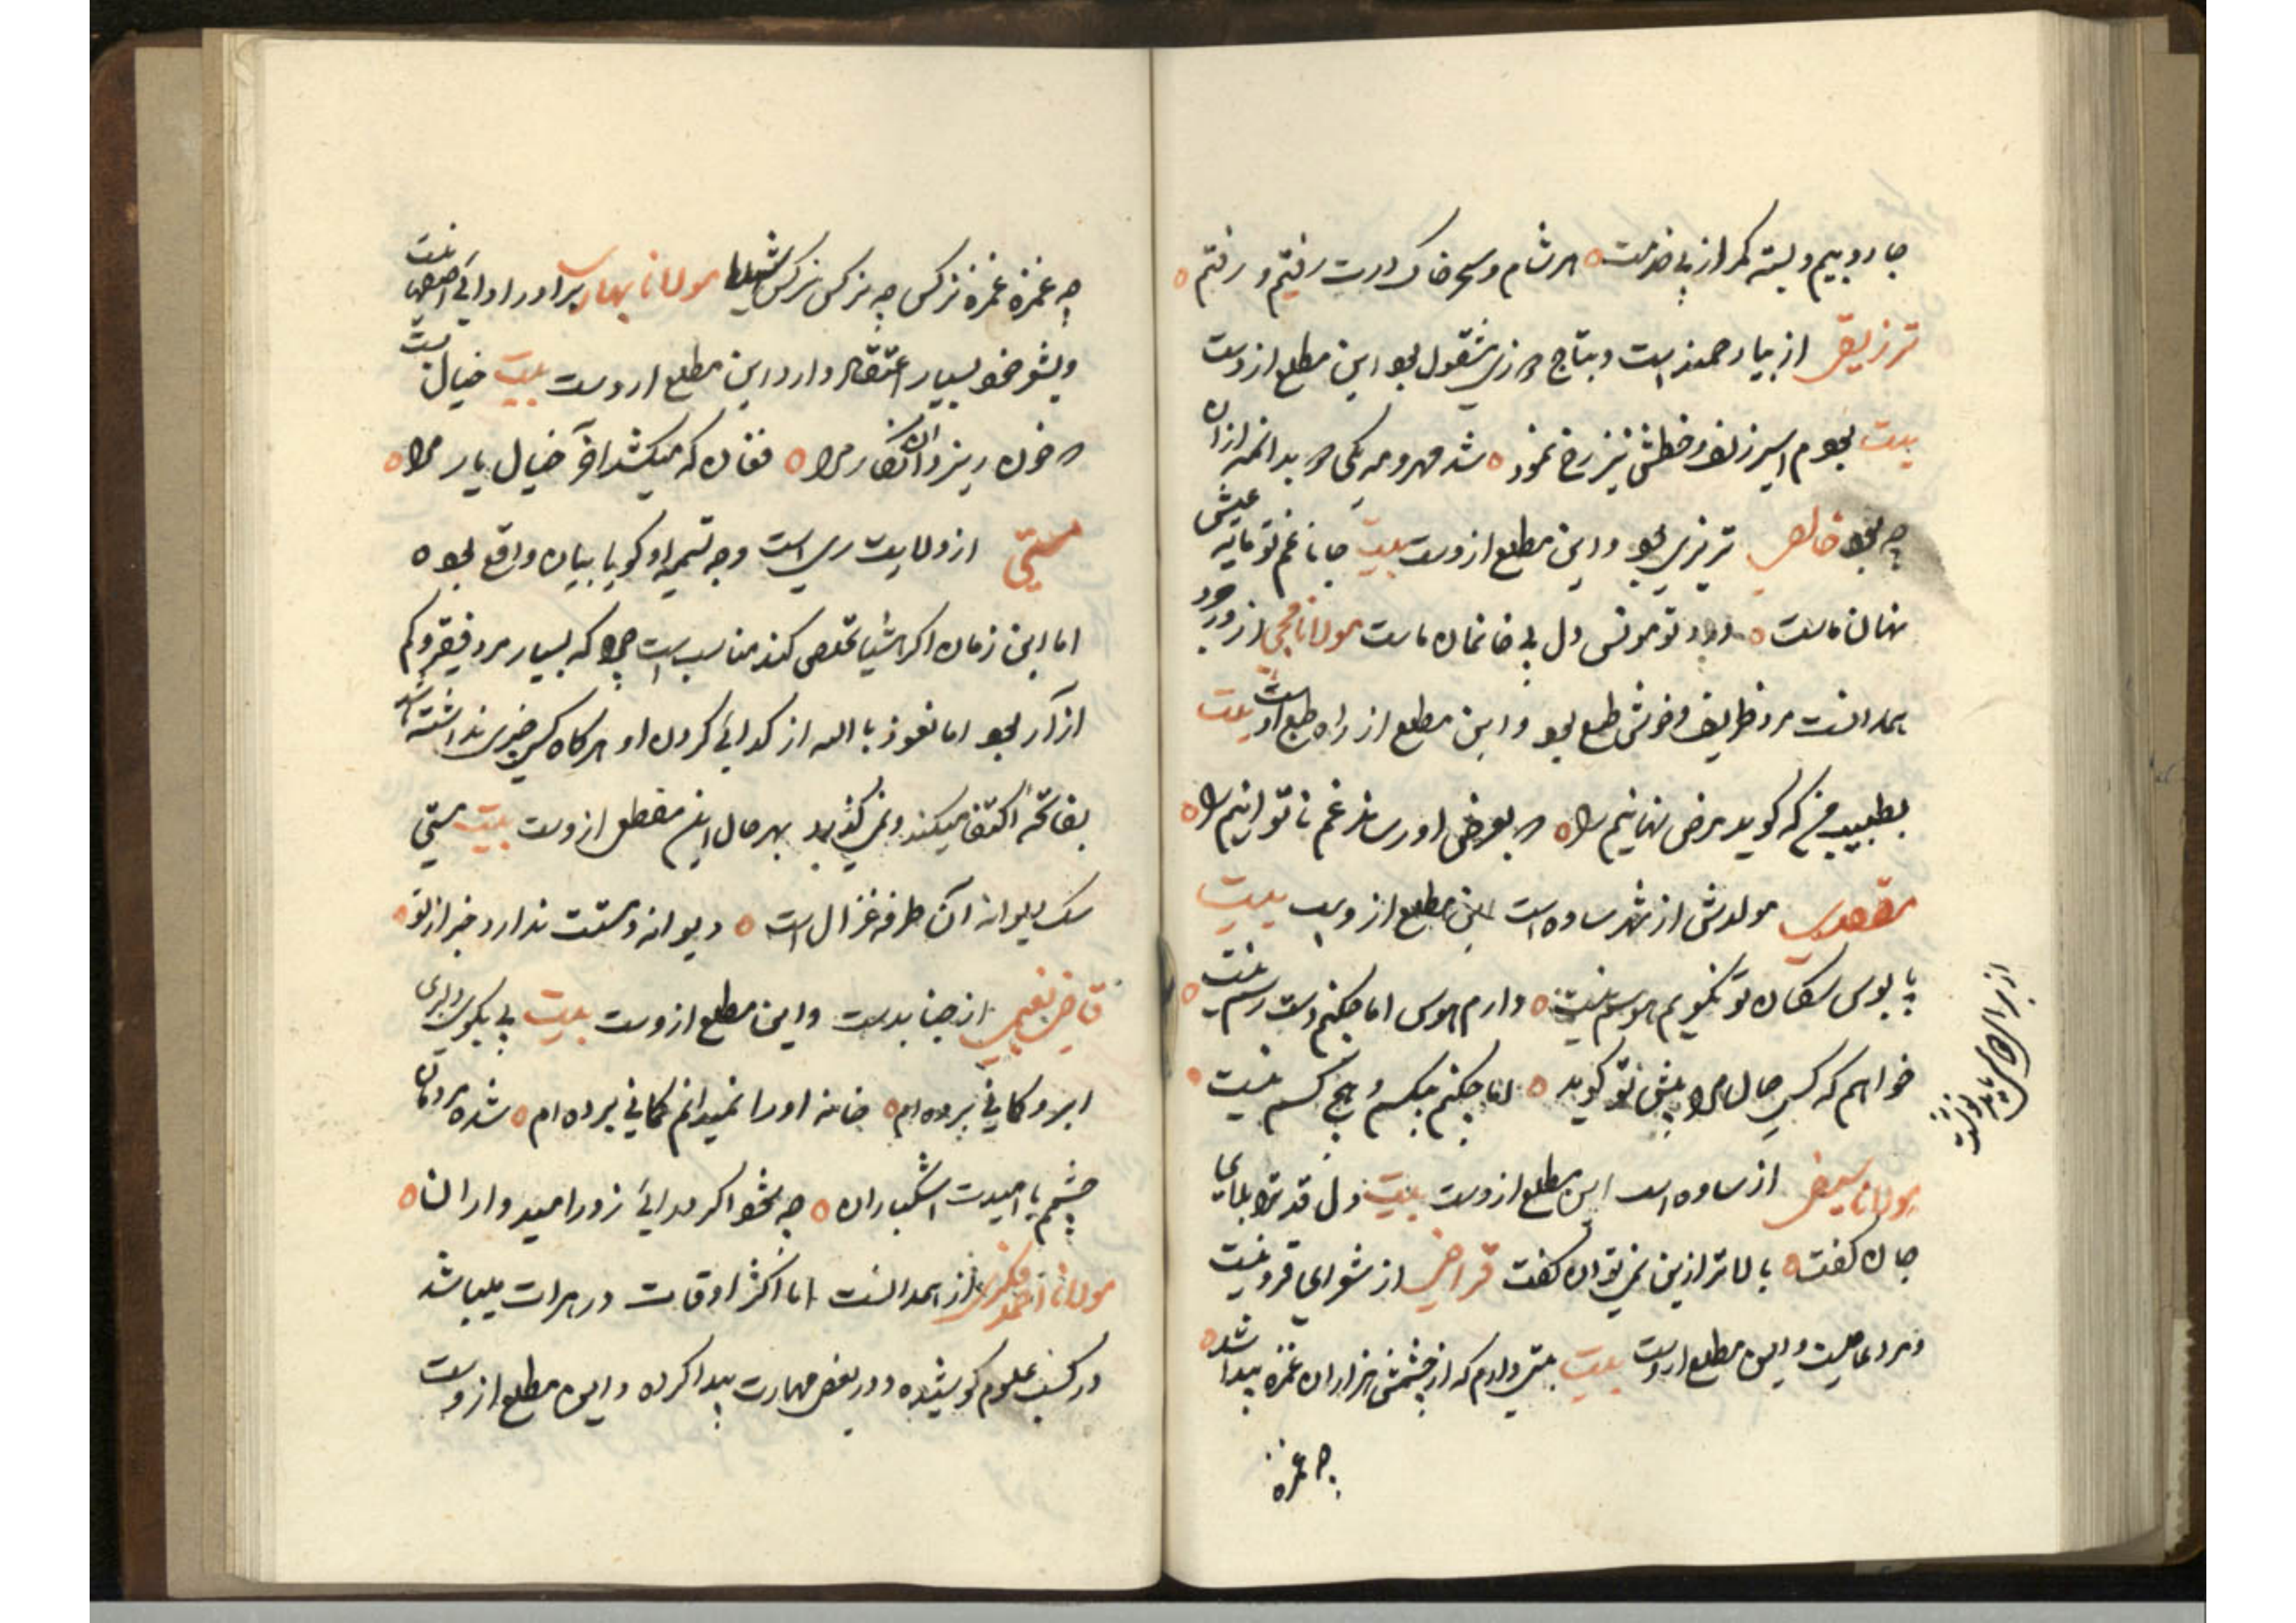 جاروبیم و بسته کمر از پی خدمت ٥ هر شام و سحر خاک درت رفتیم و رفتیم ٥
از یار همند است و بتاج دوزی مشغول بود این مطلع ازوست
بیت بودم اسیر زلف و خطش نیز رخ نمود ٥ شد مهر و مه یکی و بد انهم ازان
چه بود خالص تبریزی بود و این مطلع ازوست بیت جانا غم تو مایه عیش
نهان ماست ٥ درد تو مونس دل بی خانمان ماست مولانا محبی از
همدانست مرد ظریف و خوش طبع بود و این مطلع از راه طبع اوست بیت
بطبیب من که گوید مرض نهانیم را ٥ که بعرض او رساند غم ناتوانیم را ٥
مقصدی مولدش از شهر ساوه است این مطلع ازوست بیت
پابوس سکان تو نگویم هوسم نیست ٥ دارم هوس اما چکنم دست رسم نیست ٥
خواهم که کسی حال مرا پیش تو گوید ٥ اما چکنم بیکسم و هیچ کسم نیست ٥
مولانا سیفی از ساوه است این مطلع ازوست بیت دل قد ترا بلای
جان گفت ٥ بالاتر ازین نمی توان گفت قراضی از شعرای قزوینست
و مرد عامیست و این مطلع ازوست بیت بتی دارم که از چشمش هزاران غمزه پیدا شد ٥
چه غمزه
چه غمزه غمزه نرکس چه نرکس نرکس شهلا مولانا بهاری برادر
و بشعر خود بسیار اعتقاد دارد این مطلع ازوست بیت خیال
که خون ریزد ان نکار مرا ٥ فغان که میکشد اخر خیال یار مرا ٥
مستی از ولایت ری است وجه تسمیه او کویا بیان واقع بوده
اما این زمان اکر اشیا تخلص کند مناسب است چرا که بسیار مرد فقیر و کم
ازار بود اما نعوذ بالله از کدائی کردن او هر کاه کسی چیزی نداشته باشد
بفاتحه اکتفا میکند و نمی کذرد بهر حال این مقطع ازوست بیت مستی
سک دیوانه آن طرفه غزال است ٥ دیوانه و مستت ندارد خبر از تو ٥
قاضی نعیمی از جنابدست و این مطلع ازوست بیت پی یکبوس دلبری
ابرو کمانی برده ام ٥ خانه او را نمیدانم کمانی برده ام ٥ شده مردمان
چشم بامیدت اشکباران ٥ چه شود اکر درائی ز در امیدواران ٥
مولانا احمد فکری از همدانست اما اکثر اوقات در هرات میباشد
در کسب علوم کوشیده و در بعض مهارت پیدا کرده و این مطلع ازوست